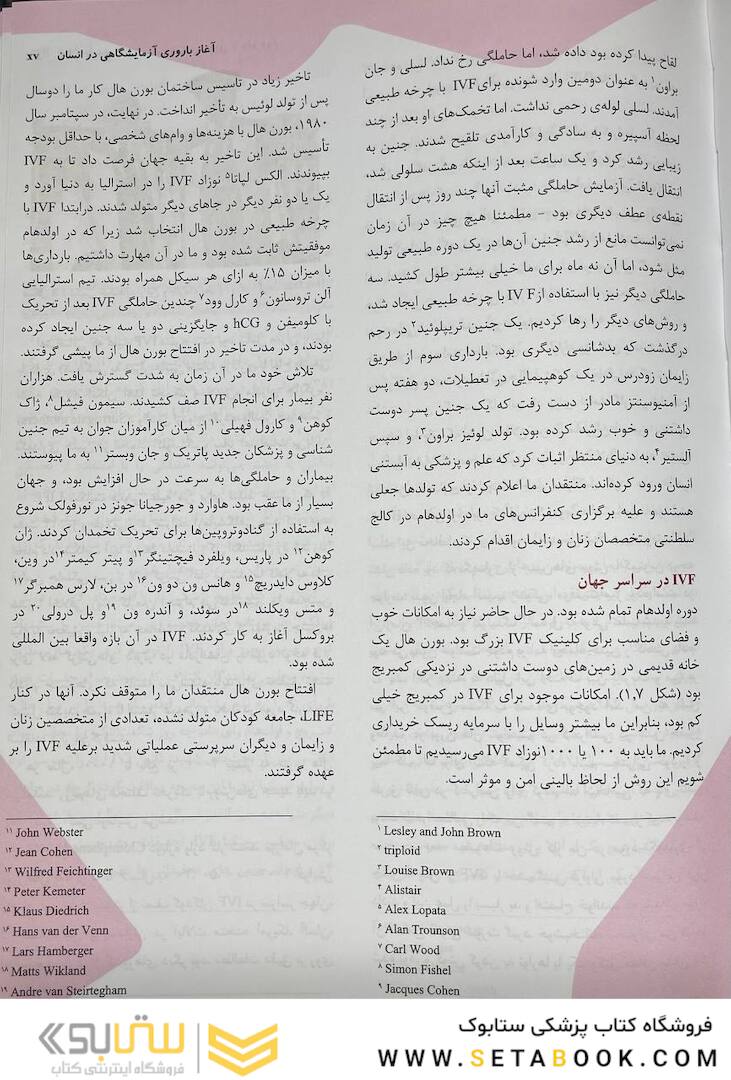 آغاز باروری آزمایشگاهی در انسان xv
لقاح پیدا کرده بود داده شد، اما حاملگی رخ نداد. لسلی و جان
براون۱ به عنوان دومین وارد شونده برای IVF با چرخه طبیعی
آمدند. لسلی لوله‌ی رحمی نداشت. اما تخمک‌های او بعد از چند
لحظه آسپیره و به سادگی و کارآمدی تلقیح شدند. جنین به
زیبایی رشد کرد و یک ساعت بعد از اینکه هشت سلولی شد،
انتقال یافت. آزمایش حاملگی مثبت آنها چند روز پس از انتقال
نقطه‌ی عطف دیگری بود - مطمئنا هیچ چیز در آن زمان
نمی‌توانست مانع از رشد جنین آن‌ها در یک دوره طبیعی تولید
مثل شود، اما آن نه ماه برای ما خیلی بیشتر طول کشید. سه
حاملگی دیگر نیز با استفاده از IVF با چرخه طبیعی ایجاد شد،
و روش‌های دیگر را رها کردیم. یک جنین تریپلوئید۲ در رحم
درگذشت که بدشانسی دیگری بود. بارداری سوم از طریق
زایمان زودرس در یک کوهپیمایی در تعطیلات، دو هفته پس
از آمنیوسنتز مادر از دست رفت که یک جنین پسر دوست
داشتنی و خوب رشد کرده بود. تولد لوئیز براون۳، و سپس
آلستیر۴، به دنیای منتظر اثبات کرد که علم و پزشکی به آبستنی
انسان ورود کرده‌اند. منتقدان ما اعلام کردند که تولدها جعلی
هستند و علیه برگزاری کنفرانس‌های ما در اولدهام در کالج
سلطنتی متخصصان زنان و زایمان اقدام کردند.
IVF در سراسر جهان
دوره اولدهام تمام شده بود. در حال حاضر نیاز به امکانات خوب
و فضای مناسب برای کلینیک IVF بزرگ بود. بورن هال یک
خانه قدیمی در زمین‌های دوست داشتنی در نزدیکی کمبریج
بود (شکل ۱,۷). امکانات موجود برای IVF در کمبریج خیلی
کم بود، بنابراین ما بیشتر وسایل را با سرمایه ریسک خریداری
کردیم. ما باید به ۱۰۰ یا ۱۰۰۰نوزاد IVF می‌رسیدیم تا مطمئن
شویم این روش از لحاظ بالینی امن و موثر است.
۱ Lesley and John Brown
۲ triploid
۳ Louise Brown
۴ Alistair
۵ Alex Lopata
۶ Alan Trounson
۷ Carl Wood
۸ Simon Fishel
۹ Jacques Cohen
تاخیر زیاد در تاسیس ساختمان بورن هال کار ما را دوسال
پس از تولد لوئیس به تأخیر انداخت. در نهایت، در سپتامبر سال
۱۹۸۰، بورن هال با هزینه‌ها و وام‌های شخصی، با حداقل بودجه
تأسیس شد. این تاخیر به بقیه جهان فرصت داد تا به IVF
بپیوندند. الکس لپاتا۵ نوزاد IVF را در استرالیا به دنیا آورد و
یک یا دو نفر دیگر در جاهای دیگر متولد شدند. درابتدا IVF با
چرخه طبیعی در بورن هال انتخاب شد زیرا که در اولدهام
موفقیتش ثابت شده بود و ما در آن مهارت داشتیم. بارداری‌ها
با میزان ۱۵٪ به ازای هر سیکل همراه بودند. تیم استرالیایی
آلن تروسانون۶ و کارل وود۷ چندین حاملگی IVF بعد از تحریک
با کلومیفن و hCG و جایگزینی دو یا سه جنین ایجاد کرده
بودند، و در مدت تاخیر در افتتاح بورن هال از ما پیشی گرفتند.
تلاش خود ما در آن زمان به شدت گسترش یافت. هزاران
نفر بیمار برای انجام IVF صف کشیدند. سیمون فیشل۸، ژاک
کوهن۹ و کارول فهیلی۱۰ از میان کارآموزان جوان به تیم جنین
شناسی و پزشکان جدید پاتریک و جان وبستر۱۱ به ما پیوستند.
بیماران و حاملگی‌ها به سرعت در حال افزایش بود، و جهان
بسیار از ما عقب بود. هاوارد و جورجیانا جونز در نورفولک شروع
به استفاده از گنادوتروپین‌ها برای تحریک تخمدان کردند. ژان
کوهن۱۲ در پاریس، ویلفرد فیچتینگر۱۳ و پیتر کیمتر۱۴در وین،
کلاوس دایدریچ۱۵ و هانس ون دو ون۱۶ در بن، لارس همبرگر۱۷
و متس ویکلند ۱۸در سوئد، و آندره ون ۱۹و پل درولی۲۰ در
بروکسل آغاز به کار کردند. IVF در آن بازه واقعا بین المللی
شده بود.
افتتاح بورن هال منتقدان ما را متوقف نکرد. آنها در کنار
LIFE، جامعه کودکان متولد نشده، تعدادی از متخصصین زنان
و زایمان و دیگران سرپرستی عملیاتی شدید برعلیه IVF را بر
عهده گرفتند.
۱۱ John Webster
۱۲ Jean Cohen
۱۳ Wilfred Feichtinger
۱۴ Peter Kemeter
۱۵ Klaus Diedrich
۱۶ Hans van der Venn
۱۷ Lars Hamberger
۱۸ Matts Wikland
۱۹ Andre van Steirtegham
فروشگاه کتاب پزشکی ستابوک
WWW.SETABOOK.COM
ستابوک
فروشگاه اینترنتی کتاب